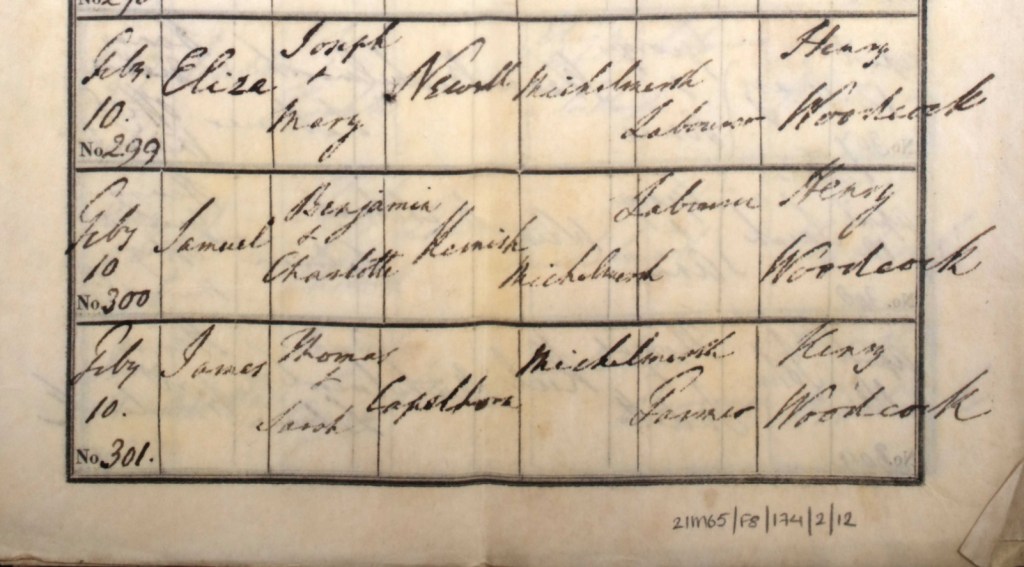 Feby. Eliza Joseph & Mary Newell Michelmersh Labourer Henry Woodcock
10.
No. 299
Feby Samuel Benjamin & Charlotte Michelmersh Labourer Henry Woodcock
10
No. 300
Feby James Thomas & Sarah Capelhorn Michelmersh Farmer Henry Woodcock
10.
No. 301.
21M65/F8/174/2/12